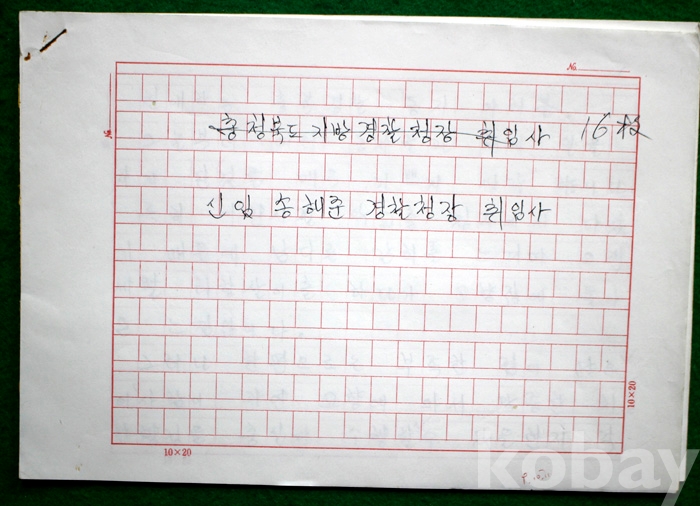 №
충청북도 지방 경찰청장 취임사 16枚
№
신임 송해준 경찰청장 취임사
10×20
10×20
kobay